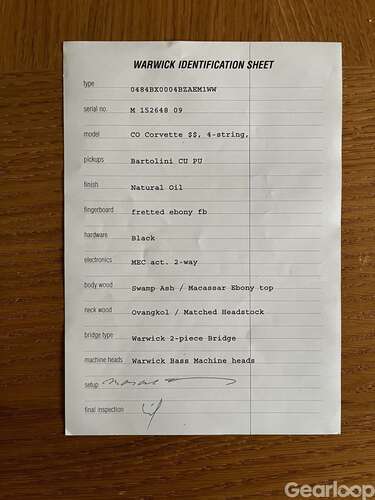 WARWICK IDENTIFICATION SHEET
type 0484BX0004BZAEM1WW
serial no. M 152648 09
model CO Corvette $$, 4-string,
pickups Bartolini CU PU
finish Natural Oil
fingerboard fretted ebony fb
hardware Black
electronics MEC act. 2-way
body wood Swamp Ash / Macassar Ebony top
neck wood Ovangkol / Matched Headstock
bridge type Warwick 2-piece Bridge
machine heads Warwick Bass Machine heads
setup
final inspection
Gearloop